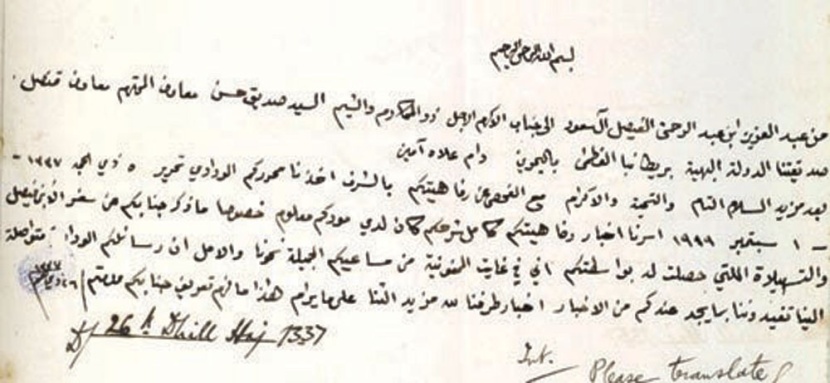 بسم الله الرحمن الرحيم
من عبد العزيز ابن عبد الرحمن الفيصل آل سعود الى جناب الاكرم الاجل ذو المكارم والشيم السيد صديق حسن معاون المحترم معاون قنصل
صديقتنا الدولة البهية بريطانيا العظمى بالبحرين دام علاه آمين
بعد مزيد السلام التام والتحية والاكرام مع الفحص عن رفاهيتكم بالشرف اخذنا محرركم الودادي تحرير ٥ ذي الحجه ١٣٣٧ –
– ١ سبتمبر ١٩١٩ اسرنا اخبار رفاهيتكم كامل شرحكم كان لدي مودكم معلوم خصوصا ما ذكر جنابكم من سفر الابن فيصل
والتسهيلاة التي حصلت له بواسطتكم اني في غايت الممنونية من مساعيكم الجميلة نحونا والامل ان رسائلكم الودادية متواصلة
الينا تفيدوننا بما يجد عندكم من الاخبار اخبار طرفنا لله مزيد الثنا على ما يرام هذا ما لزم تعريف جنابكم ودمتم
٢٦ ١٣٣٧
D/ 26th Dhill Haj 1337
Int.
Please translate